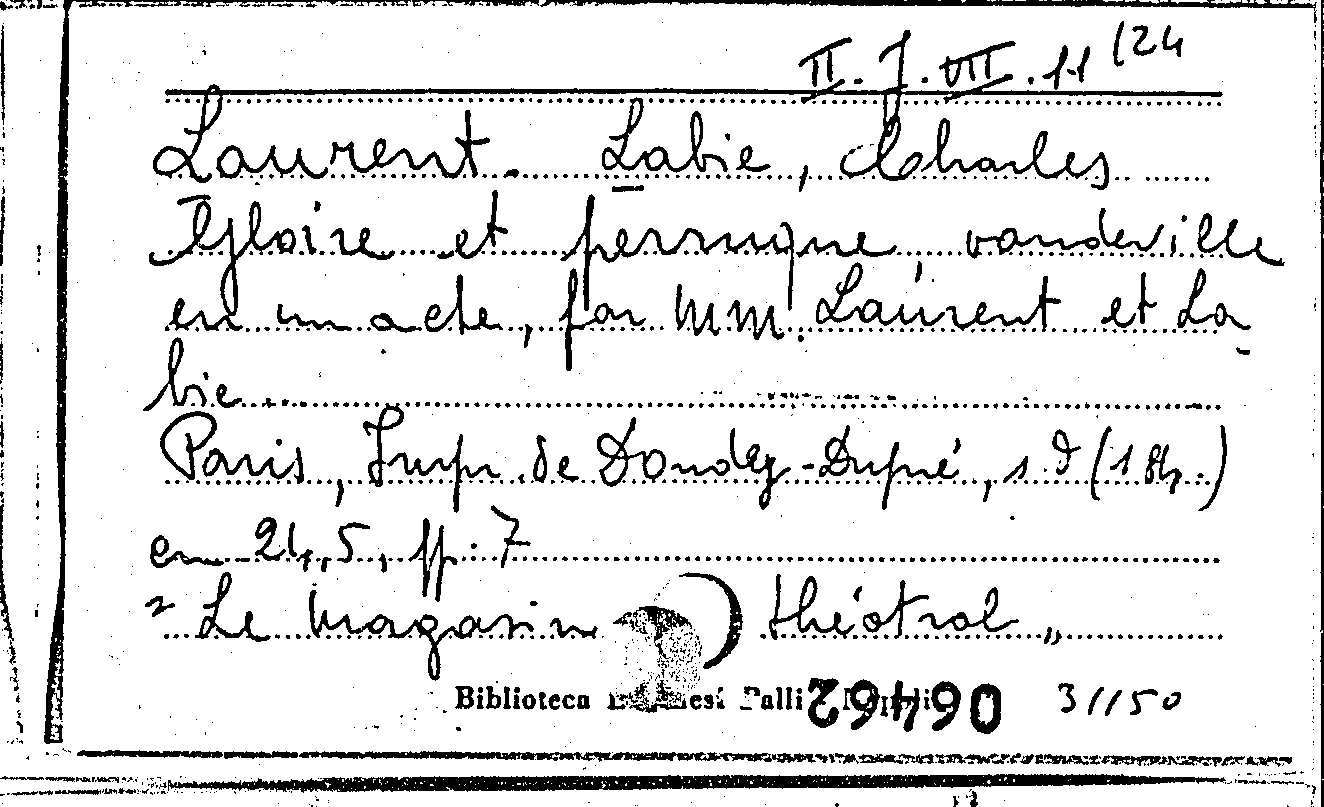 II. J. VIII. 11 (24
Laurent. Labie, Charles
Gloire et perruque, vaudeville
en un acte, par MM. Laurent et La
bie.
Paris, Impr. de Dondey-Dupré, s. d (18..)
cm 24,5, pp. 7
" Le magasin théâtral "
Biblioteca Palli
06462 31150